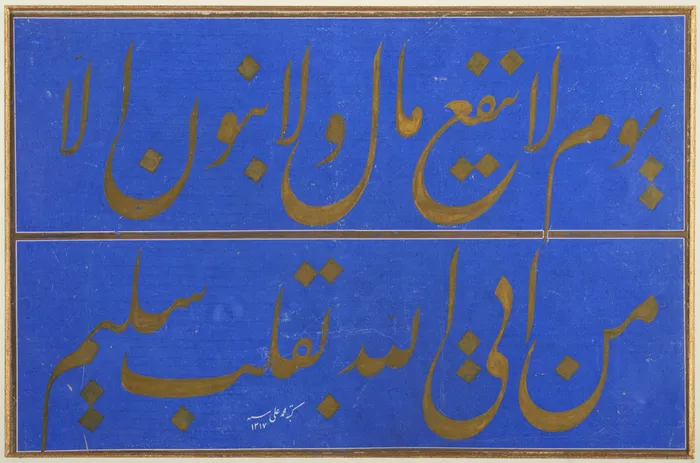 يوم لا ينفع مال ولا بنون الا
من اتى الله بقلب سليم
كتبه محمد على سنه
۱۳۱۷